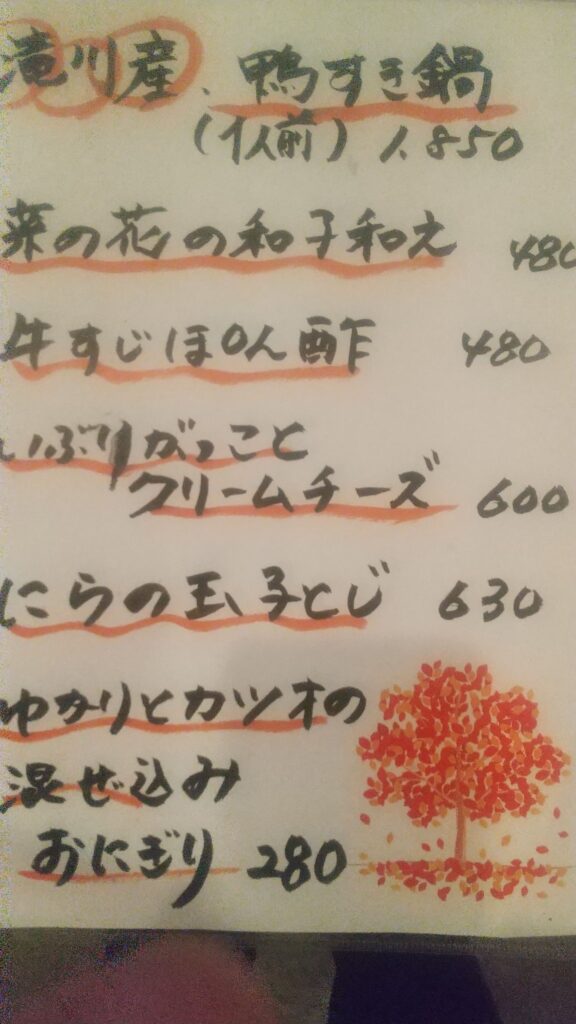 滝川産、鴨すき鍋
(1人前) 1,850
菜の花の和子和え 480
牛すじほのん酢 480
いぶりがっこと
クリームチーズ 600
にらの玉子とじ 630
ゆかりとカツオの
混ぜ込み
おにぎり 280